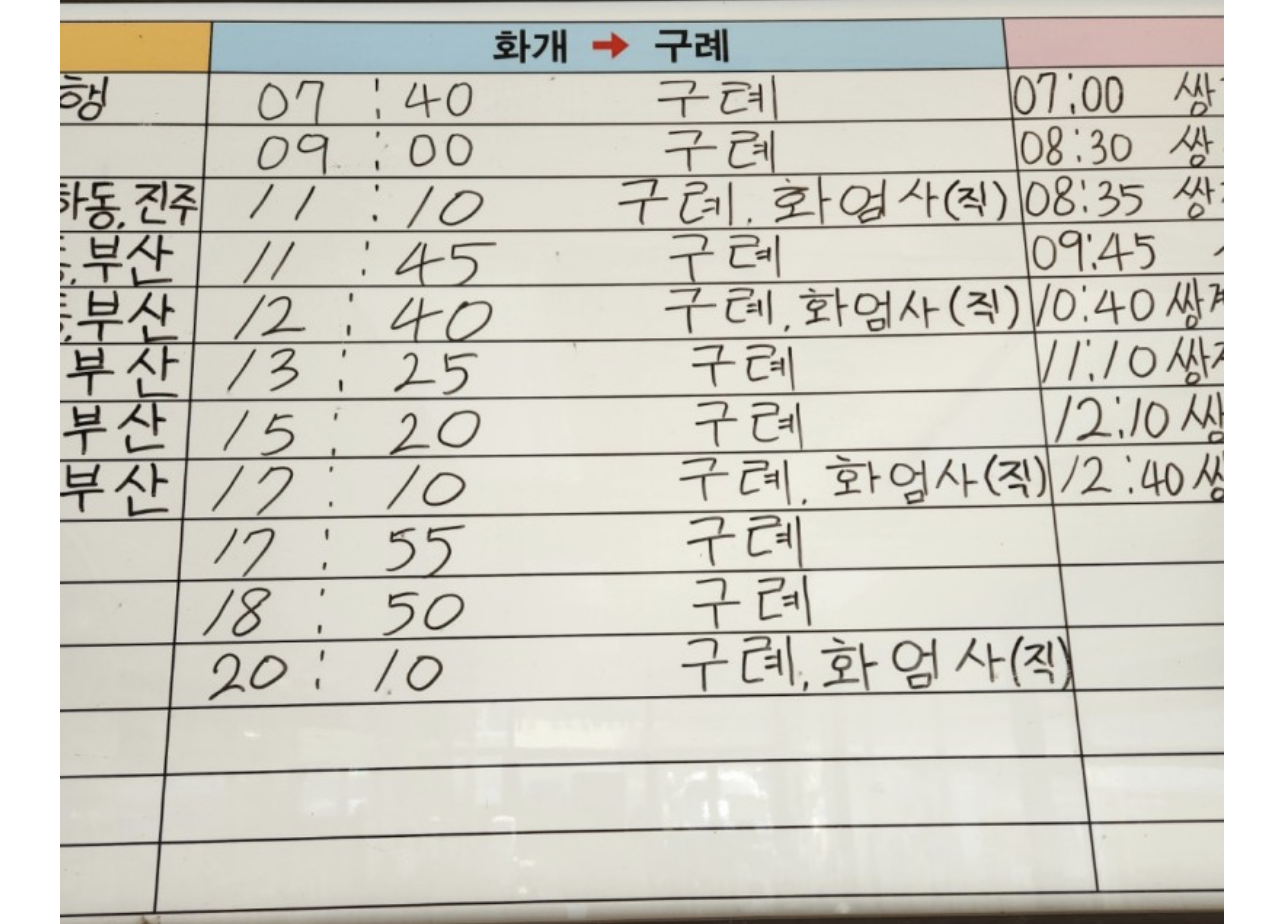 화개 → 구례
행 07 : 40 구례 07:00
09 : 00 구례 08:30
하동, 진주 11 : 10 구례, 화엄사(직) 08:35
부산 11 : 45 구례 09:45
부산 12 : 40 구례, 화엄사(직) 10:40
부산 13 : 25 구례 11:10
부산 15 : 20 구례 12:10
부산 17 : 10 구례, 화엄사(직) 12:40
17 : 55 구례
18 : 50 구례
20 : 10 구례, 화엄사(직)